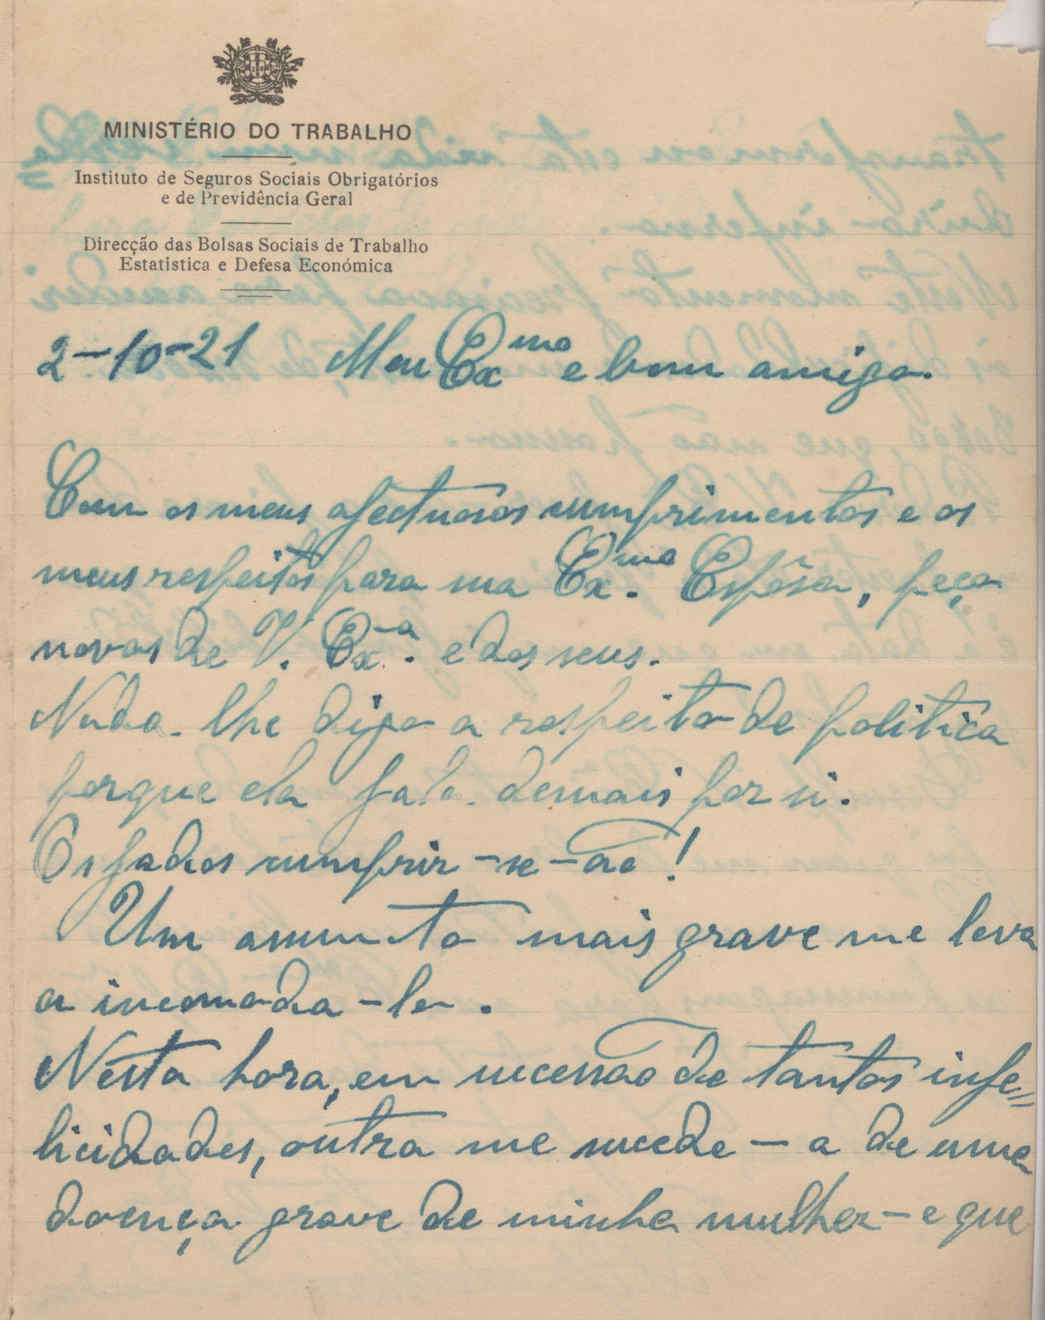 MINISTÉRIO DO TRABALHO
Instituto de Seguros Sociais Obrigatórios
e de Previdência Geral
Direcção das Bolsas Sociais de Trabalho
Estatistica e Defesa Económica
2-10-21 Meu Exmo e bom amigo.
Com os meus afectuosos cumprimentos e os
meus respeitos para sua Exma. Espôsa, peço
novas de V. Ex.a e dos seus.
Nada lhe digo a respeito de politica
porque ela fala demais por si.
Os fados cumprir-se-ão!
Um assunto mais grave me leva
a incomoda-lo.
Nesta hora, em sucessão de tantas infe=
licidades, outra me sucede - a de uma
doença grave de minha mulher - e que